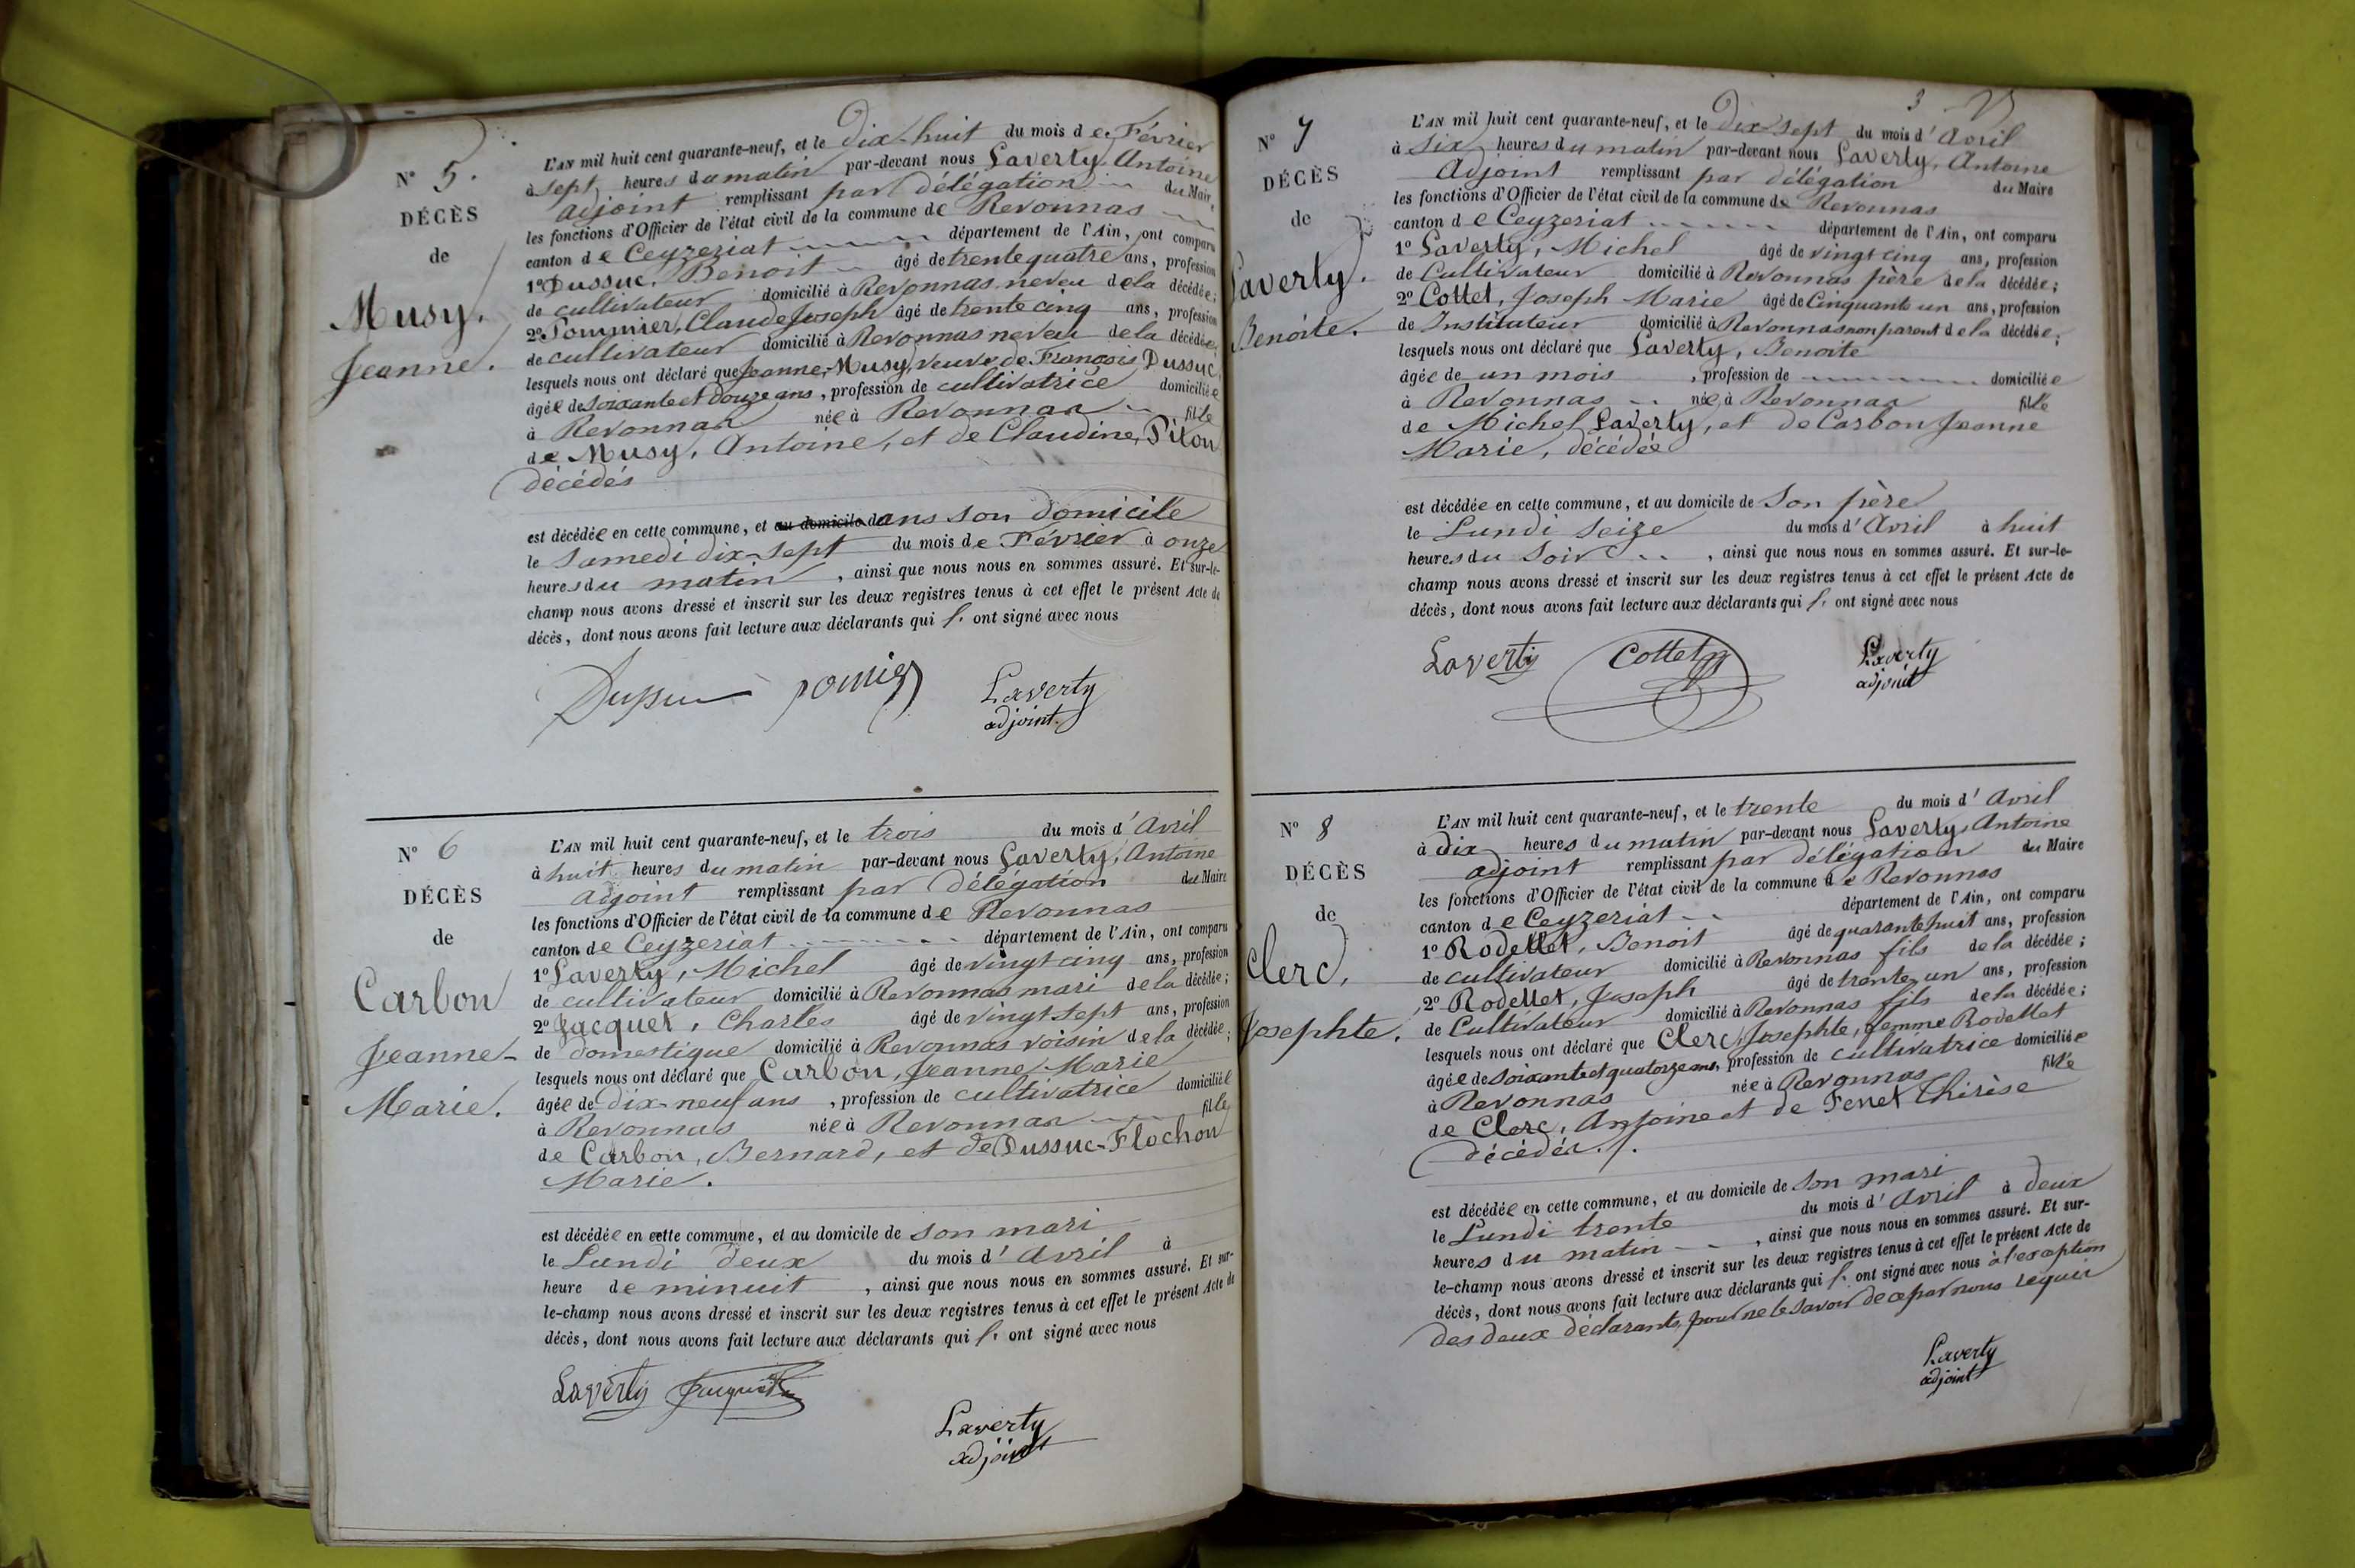 N° 5.
DÉCÈS
de
Musy.
Jeanne.
L'AN mil huit cent quarante-neuf, et le dix-huit du mois de Février
à sept heures du matin par-devant nous Laverty, Antoine
adjoint remplissant par délégation du Maire
les fonctions d'Officier de l'état civil de la commune de Revonnas
canton de Ceyzeriat département de l'Ain, ont comparu
1° Dussuc, Benoit âgé de trente quatre ans, profession
de cultivateur domicilié à Revonnas neveu de la décédée;
2° Pommier, Claude Joseph âgé de trente cinq ans, profession
de cultivateur domicilié à Revonnas neveu de la décédée;
lesquels nous ont déclaré que Jeanne, Musy, veuve de François Dussuc,
âgée de soixante et douze ans, profession de cultivatrice domiciliée
à Revonnas née à Revonnas fille
de Musy, Antoine, et de Claudine, Piton
décédés
est décédée en cette commune, et au domicile dans son domicile
le Samedi dix-sept du mois de Février à onze
heures du matin, ainsi que nous nous en sommes assuré. Et sur-le-
champ nous avons dressé et inscrit sur les deux registres tenus à cet effet le présent Acte de
décès, dont nous avons fait lecture aux déclarants qui l' ont signé avec nous
Dussuc pomier Laverty
adjoint.
N° 6
DÉCÈS
de
Carbon
Jeanne-
Marie.
L'AN mil huit cent quarante-neuf, et le trois du mois d'Avril
à huit heures du matin par-devant nous Laverty, Antoine
adjoint remplissant par délégation du Maire
les fonctions d'Officier de l'état civil de la commune de Revonnas
canton de Ceyzeriat département de l'Ain, ont comparu
1° Laverty, Michel âgé de vingt cinq ans, profession
de cultivateur domicilié à Revonnas mari de la décédée;
2° Jacquet, Charles âgé de vingt sept ans, profession
de domestique domicilié à Revonnas voisin de la décédée;
lesquels nous ont déclaré que Carbon, Jeanne Marie
âgée de dix-neuf ans, profession de cultivatrice domiciliée
à Revonnas née à Revonnas fille
de Carbon, Bernard, et de Dussuc-Flochon
Marie.
est décédée en cette commune, et au domicile de son mari
le Lundi deux du mois d'Avril à
heure de minuit, ainsi que nous nous en sommes assuré. Et sur-
le-champ nous avons dressé et inscrit sur les deux registres tenus à cet effet le présent Acte de
décès, dont nous avons fait lecture aux déclarants qui l' ont signé avec nous
Laverty Jacquet
Laverty
adjoint
3
N° 7
DÉCÈS
de
Laverty.
Benoite.
L'AN mil huit cent quarante-neuf, et le dix-sept du mois d'Avril
à six heures du matin par-devant nous Laverty, Antoine
Adjoint remplissant par délégation du Maire
les fonctions d'Officier de l'état civil de la commune de Revonnas
canton de Ceyzeriat département de l'Ain, ont comparu
1° Laverty, Michel âgé de vingt cinq ans, profession
de Cultivateur domicilié à Revonnas père de la décédée;
2° Cottet, Joseph Marie âgé de Cinquante un ans, profession
de Instituteur domicilié à Revonnas non parent de la décédée;
lesquels nous ont déclaré que Laverty, Benoite
âgée de un mois, profession de domiciliée
à Revonnas née à Revonnas fille
de Michel Laverty, et de Carbon Jeanne
Marie, décédée
est décédée en cette commune, et au domicile de son père
le Lundi seize du mois d'Avril à huit
heures du soir, ainsi que nous nous en sommes assuré. Et sur-le-
champ nous avons dressé et inscrit sur les deux registres tenus à cet effet le présent Acte de
décès, dont nous avons fait lecture aux déclarants qui l' ont signé avec nous
Laverty Cottet Laverty
adjoint
N° 8
DÉCÈS
de
Clerc,
Josephte.
L'AN mil huit cent quarante-neuf, et le trente du mois d'Avril
à dix heures du matin par-devant nous Laverty, Antoine
adjoint remplissant par délégation du Maire
les fonctions d'Officier de l'état civil de la commune de Revonnas
canton de Ceyzeriat département de l'Ain, ont comparu
1° Rodellet, Benoit âgé de quarante huit ans, profession
de cultivateur domicilié à Revonnas fils de la décédée;
2° Rodellet, Joseph âgé de trente un ans, profession
de Cultivateur domicilié à Revonnas fils de la décédée;
lesquels nous ont déclaré que Clerc, Josephte, femme Rodellet
âgée de soixante et quatorze ans, profession de cultivatrice domiciliée
à Revonnas née à Revonnas fille
de Clerc, Antoine et de Ferret Thérèse
décédés.
est décédée en cette commune, et au domicile de son mari
le Lundi trente du mois d'Avril à deux
heures du matin, ainsi que nous nous en sommes assuré. Et sur-
le-champ nous avons dressé et inscrit sur les deux registres tenus à cet effet le présent Acte de
décès, dont nous avons fait lecture aux déclarants qui l' ont signé avec nous à l'exception
des deux déclarants, pour ne le savoir de ce par nous requis
Laverty
adjoint